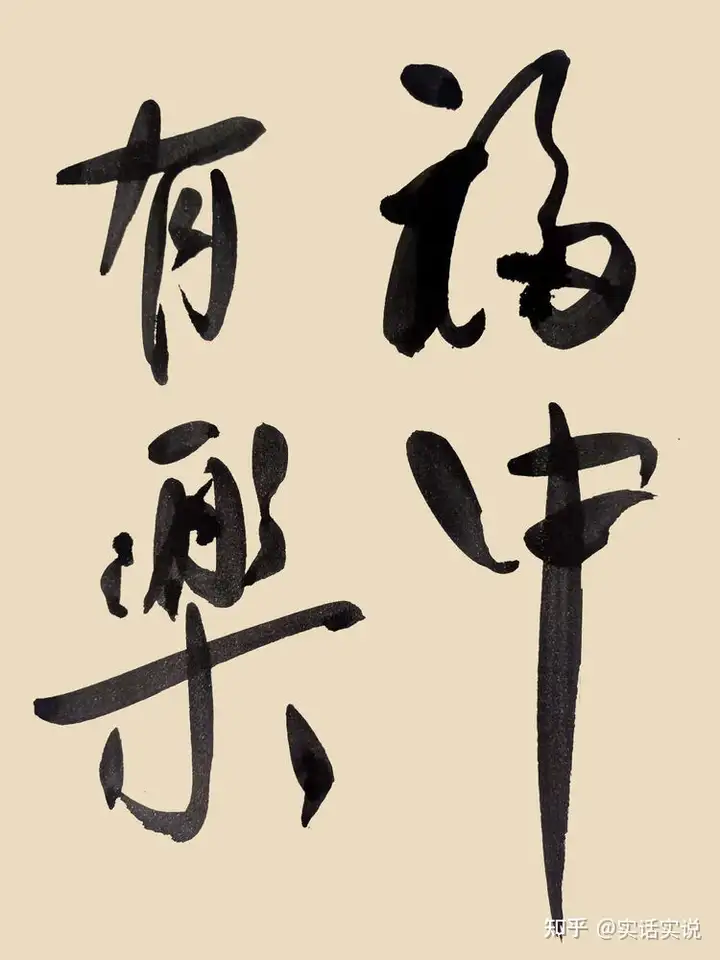 福中
有樂
知乎 @实话实说